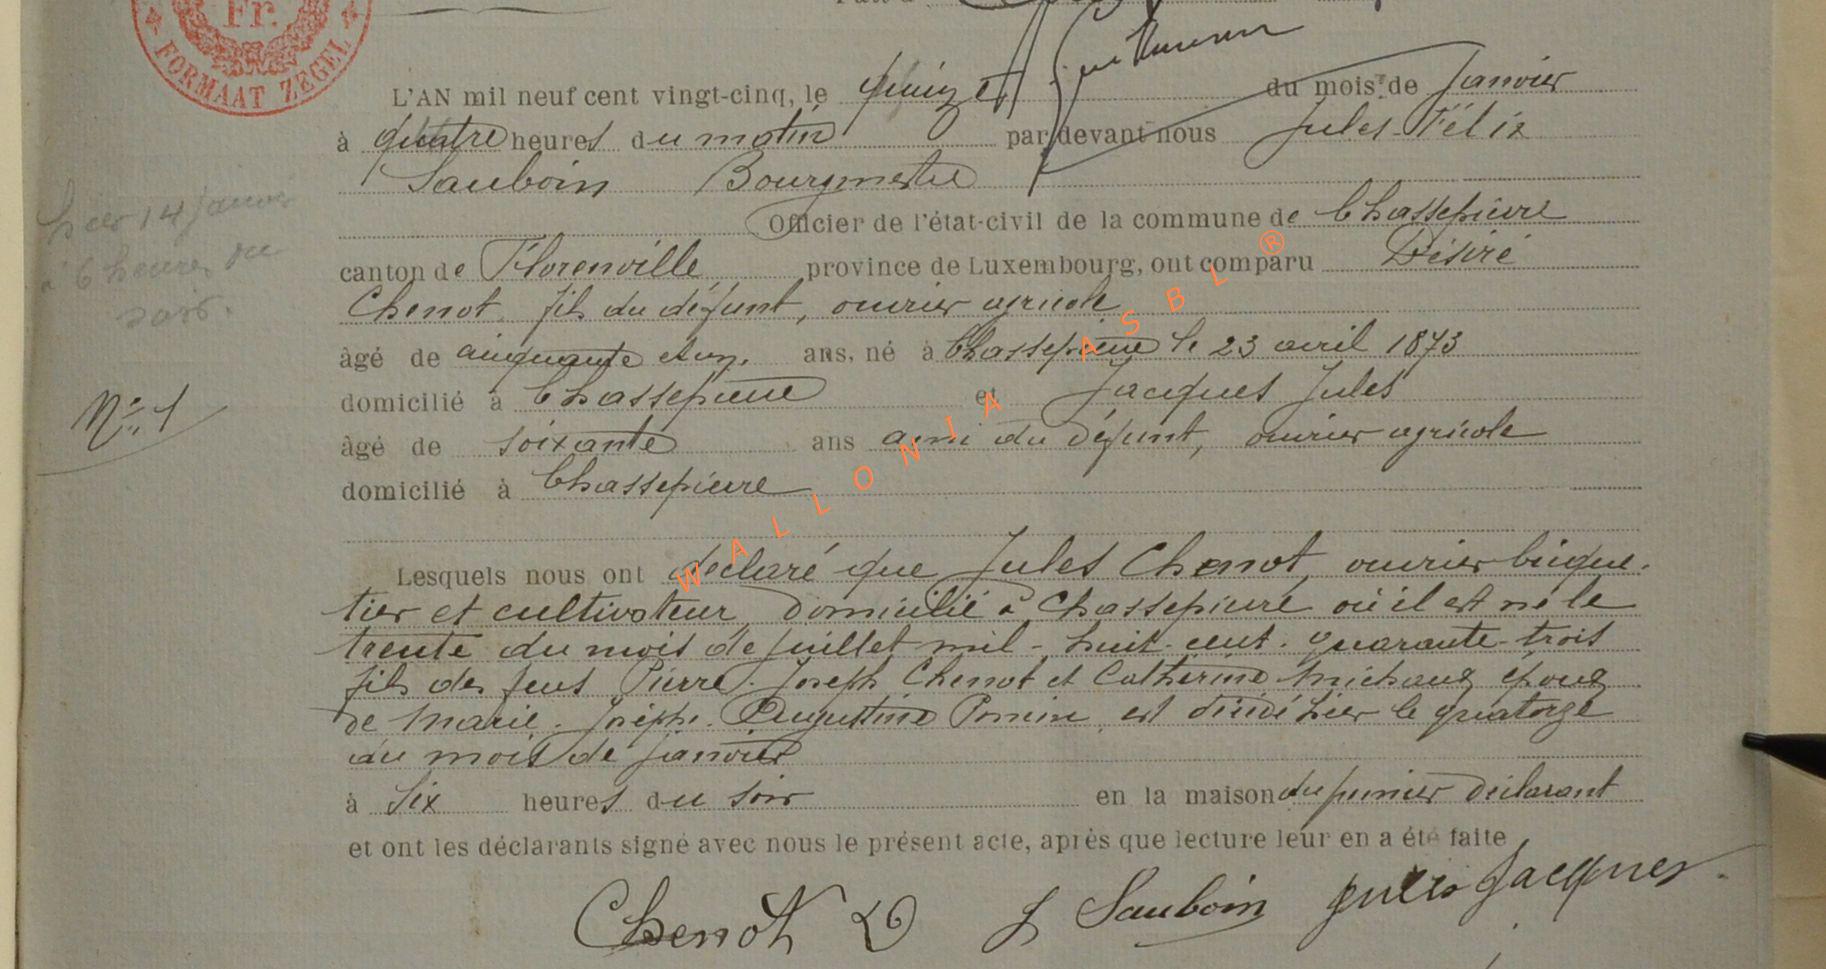 Fr.
FORMAAT ZEGEL
L'AN mil neuf cent vingt-cinq, le quinze du mois de Janvier
à quatre heures du matin par devant nous Jules-Félix
Sauboin Bourgmestre
Officier de l'état-civil de la commune de Chassepierre
hier 14 janvier
à 6 heures du
soir.
canton de Florenville province de Luxembourg, ont comparu Désiré
Chenot, fils du défunt, ouvrier agricole
âgé de cinquante et un ans, né à Chassepierre le 23 avril 1873
N° 1
domicilié à Chassepierre et Jacques Jules
âgé de soixante ans ami du défunt, ouvrier agricole
domicilié à Chassepierre
WALLONIA ASBL ®
Lesquels nous ont déclaré que Jules Chenot, ouvrier brique-
tier et cultivateur domicilié à Chassepierre où il est né le
trente du mois de juillet mil-huit-cent-quarante-trois
fils des feus Pierre-Joseph Chenot et Catherine Michaux époux
de Marie-Joséphe-Augustine Ponin est décédé hier le quatorze
du mois de janvier
à six heures du soir en la maison du premier déclarant
et ont les déclarants signé avec nous le présent acte, après que lecture leur en a été faite
Chenot D J Sauboin Jules Jacques